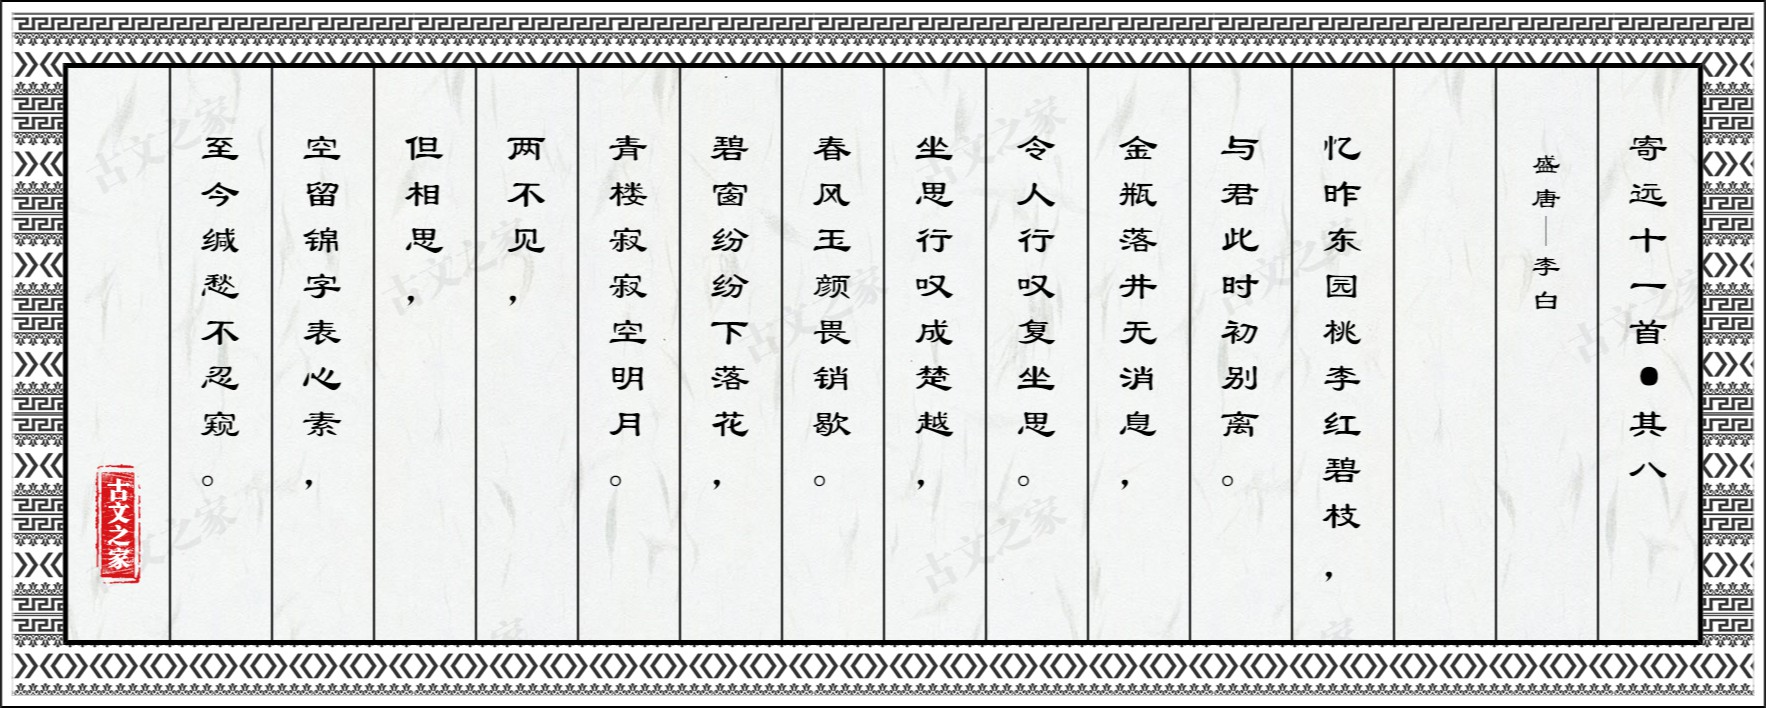 寄远十一首●其八
盛唐—李白
忆昨东园桃李红碧枝，
与君此时初别离。
金瓶落井无消息，
令人行叹复坐思。
坐思行叹成楚越，
春风玉颜畏销歇。
碧窗纷纷下落花，
青楼寂寂空明月。
两不见，
但相思，
空留锦字表心素，
至今缄愁不忍窥。
古文之家